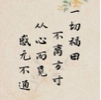 一切福田
不离方寸
从心而觅
感无不通